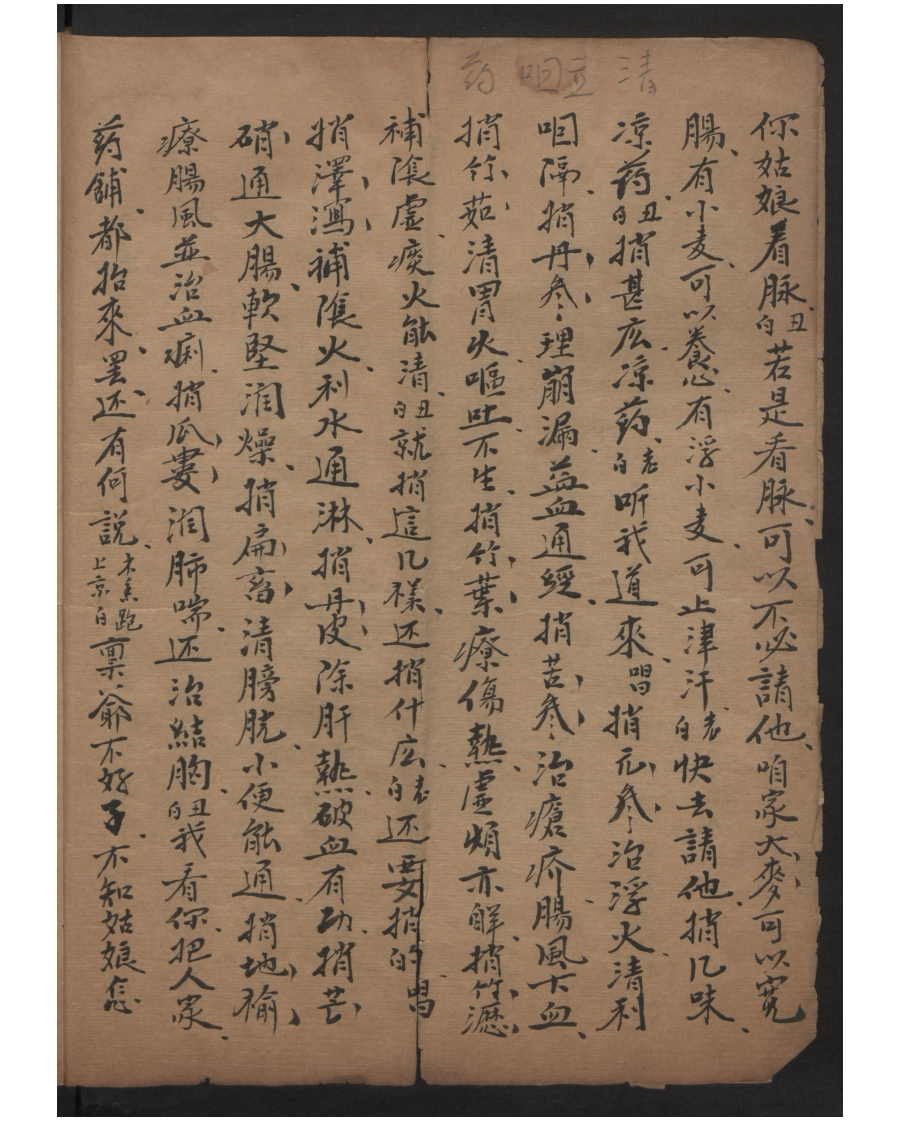 清並咽药
你姑娘看脉丑白若是看脉可以不必請他咱家大麥可以寛
腸有小麦可以養心有浮小麦可止津汗老白快去請他捎几味
凉药丑白捎甚庅凉药老白听我道來唱捎元参治浮火清利
咽隔捎丹参理崩漏益血通經捎苦参治瘡疥腸風下血
捎竹茹清胃火嘔吐不生捎竹葉療傷熱虚煩亦觧捎竹瀝
補隂虚痰火能清丑白就捎這几样还捎什庅老白还要捎的唱
捎澤瀉補隂火利水通淋捎丹皮除肝熱破血有功捎芒
硝通大腸軟堅润燥捎扁畜清膀胱小便能通捎地榆
療腸風並治血痢捎瓜蔞润肺喘还治結胸丑白我看你把人家
药舖都抬來罢还有何説木香跑上京白禀爺不好了不知姑娘怎